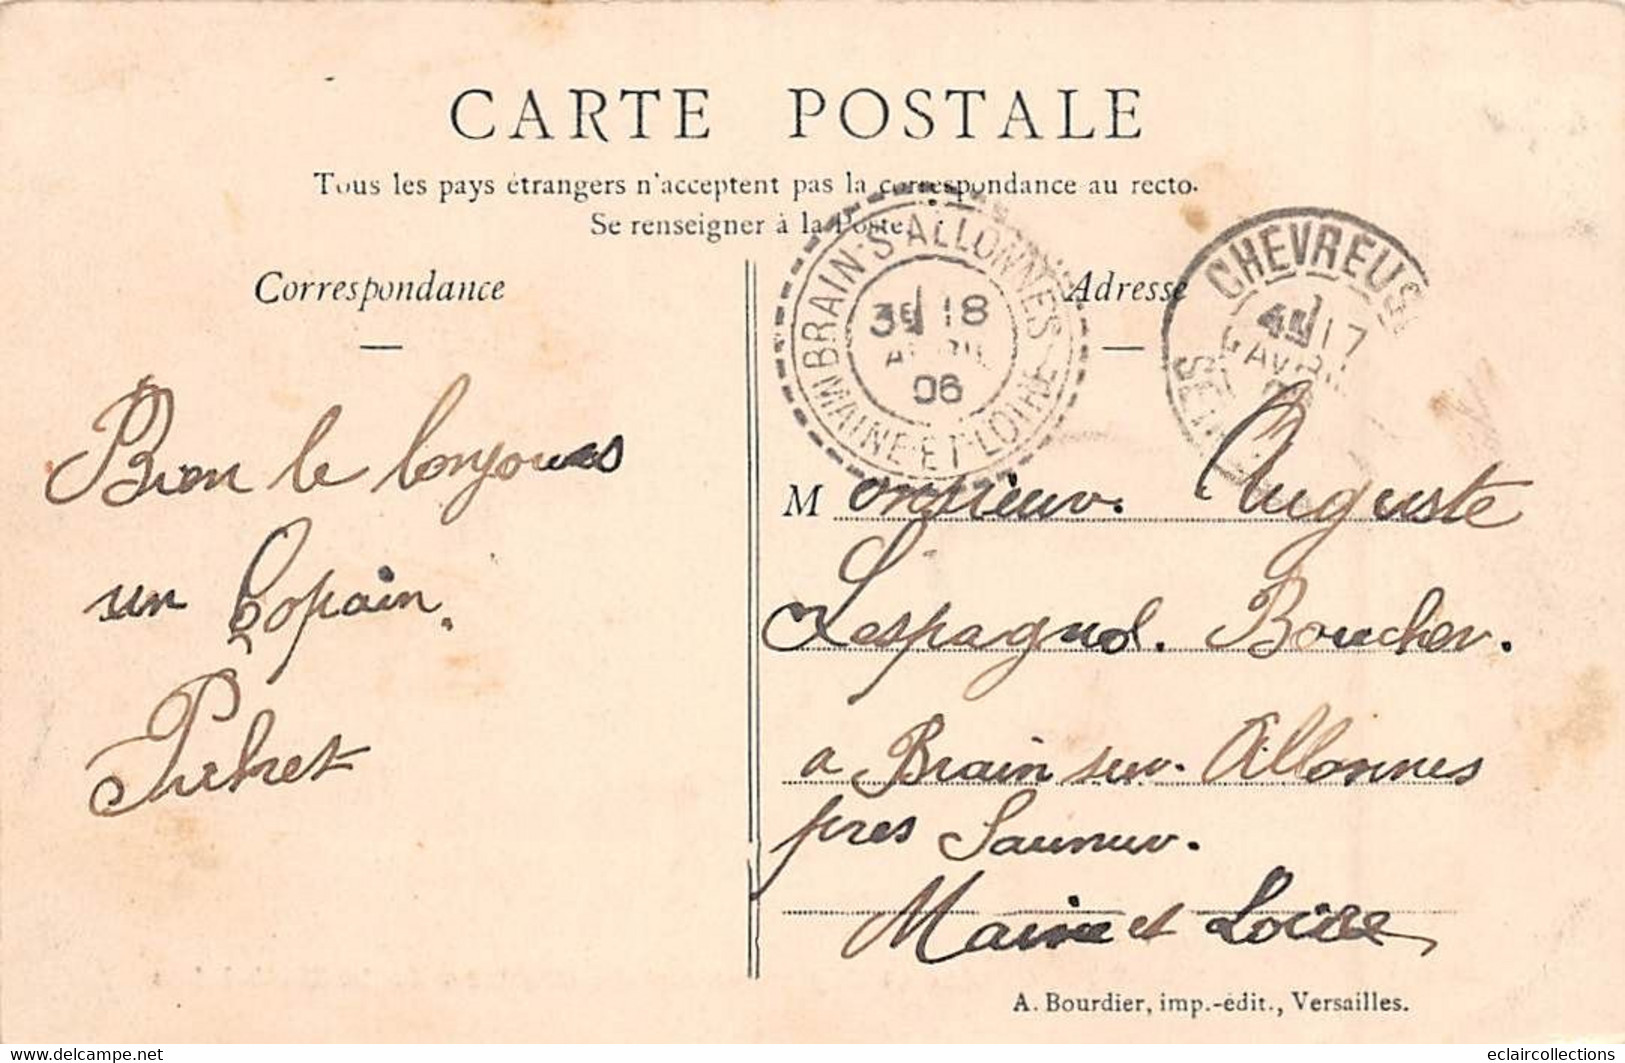 CARTE POSTALE
Tous les pays étrangers n'acceptent pas la correspondance au recto.
Se renseigner à la Poste.
Correspondance
Adresse
BRAIN-S-ALLONNES
3E 18
AVRIL
06
MAINE-ET-LOIRE
CHEVREUSE
4E 17
AVRIL
Bien le bonjours
un Copain.
Monsieur. Auguste
Lespagnol. Boucher.
a Brain sur. Allonnes
pres Saumur.
Maine et Loire
A. Bourdier, imp.-édit., Versailles.
eclaircollections